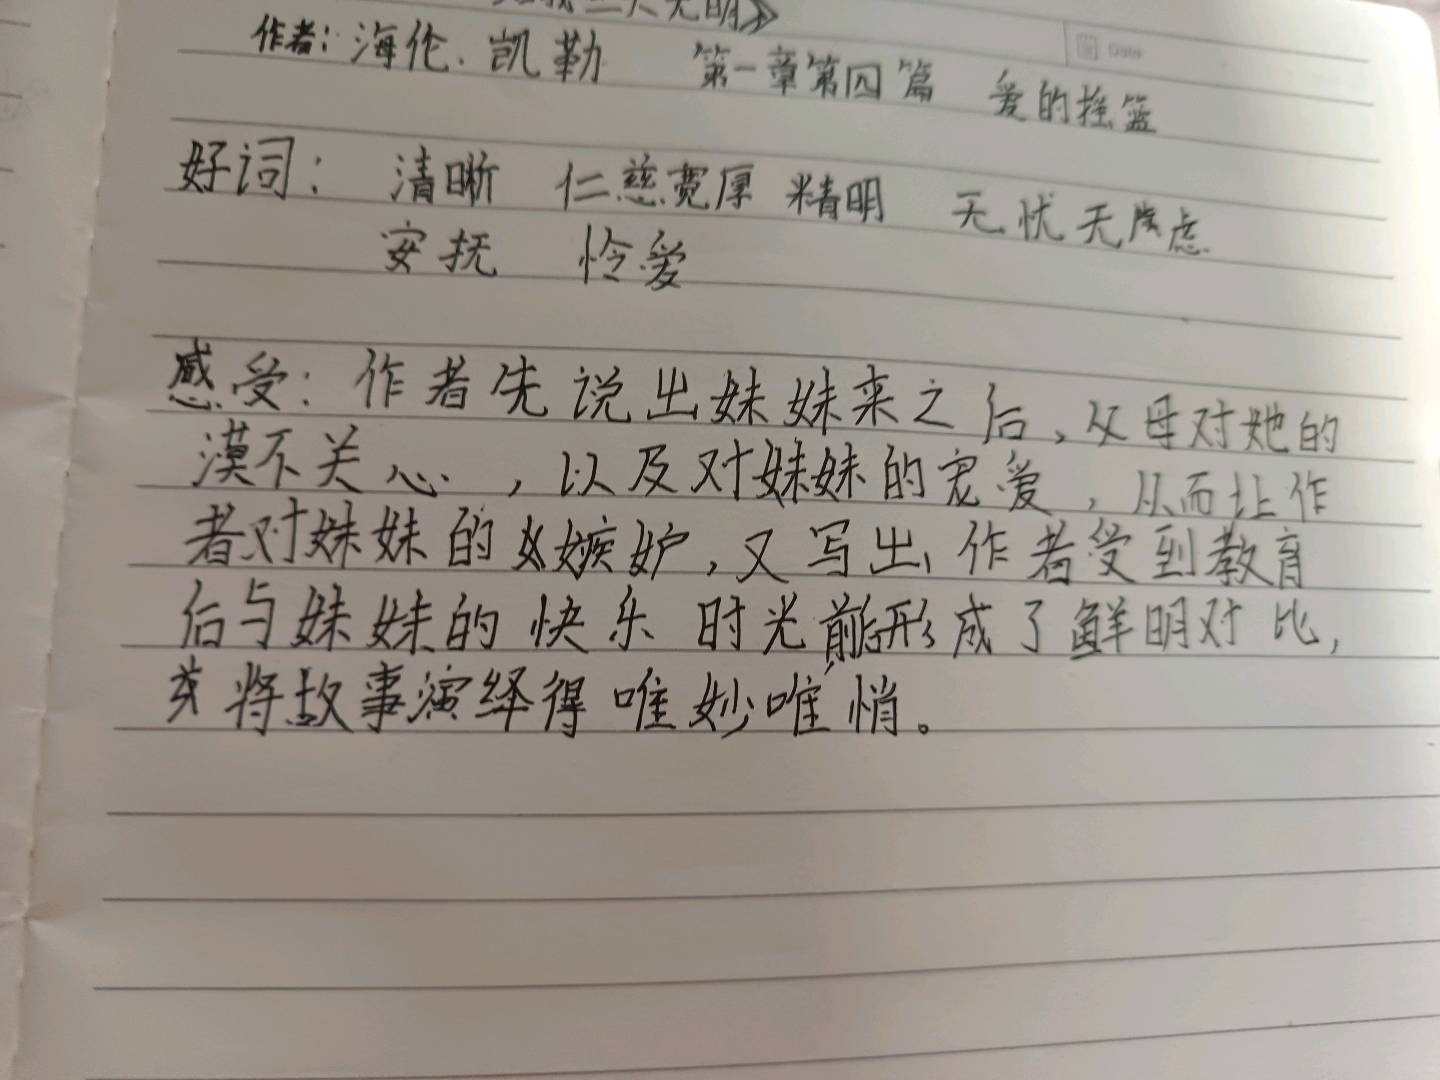 三天光明》
作者：海伦.凯勒 第一章第四篇 爱的摇篮
Date
好词： 清晰 仁慈宽厚 精明 无忧无虑
安抚 怜爱
感受：作者先说出妹妹来之后，父母对她的
漠不关心，以及对妹妹的宠爱，从而让作
者对妹妹的嫉妒，又写出作者受到教育
后与妹妹的快乐时光前后形成了鲜明对比，
将故事演绎得唯妙唯悄。